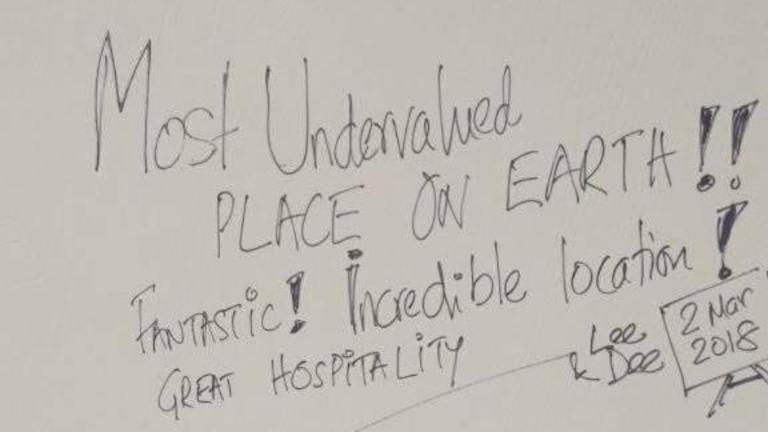 Most Undervalued
PLACE ON EARTH!!
FANTASTiC! Incredible location!
GREAT HOSPiTALiTY
Lee
& Dee
2 Mar
2018